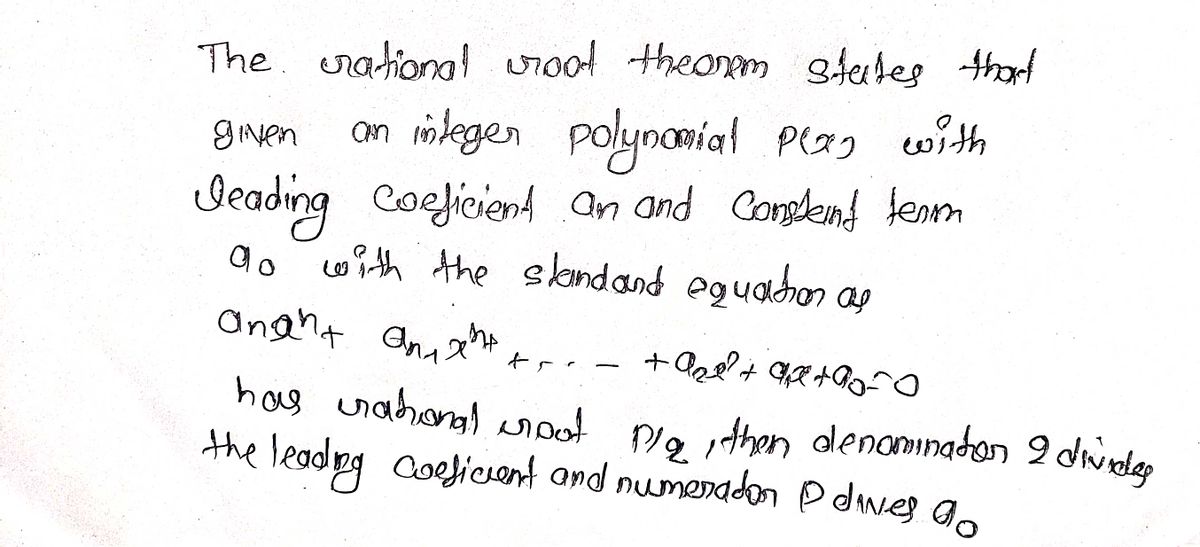 The rational root theorem states that
given an integer polynomial P(x) with
leading coeficient an and Constant term
a0 with the standard equation as
anxn + an-1 xn-1 + ... - + a2x2 + a1x + a0 = 0
has rational root p/q, then denominator q divides
the leading Coeficient and numerator p divies a0